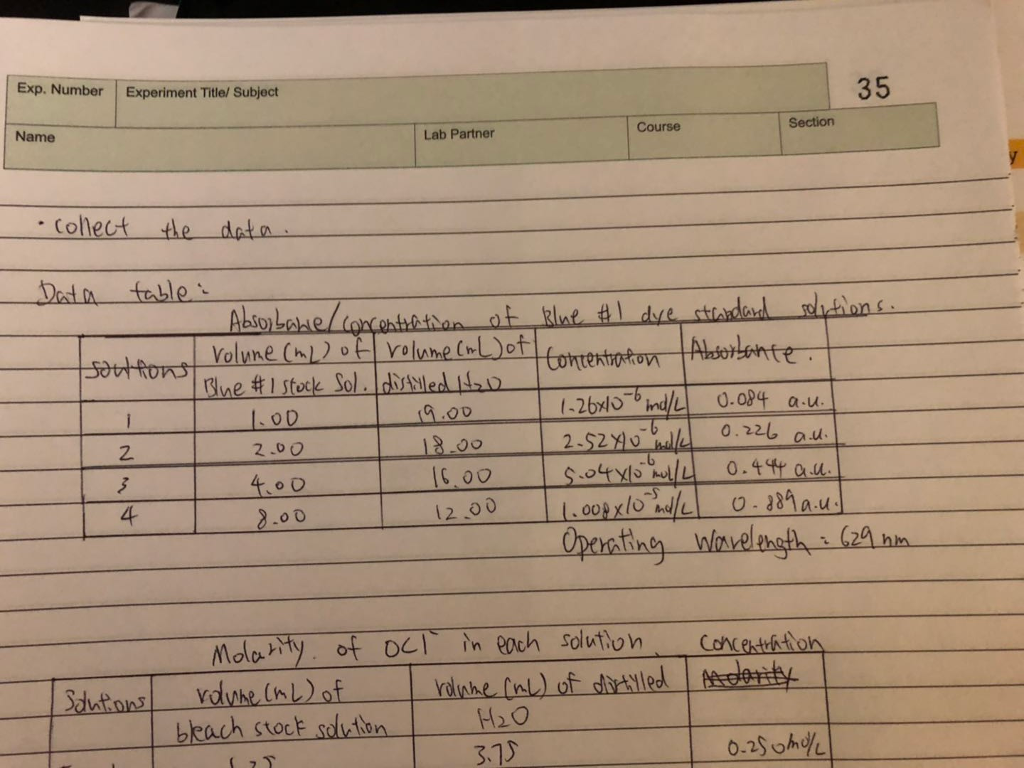 35
Exp. Number Experiment Title/ Subject
Name Lab Partner Course Section
• collect the data.
Data table:
Absorbance/concentration of Blue #1 dye standard solutions.
solutions volume (mL) of Blue #1 stock Sol. volume (mL) of distilled H2O Concentration Absorbance.
1 1.00 19.00 1.26x10⁻⁶ mol/L 0.084 a.u.
2 2.00 18.00 2.52x10⁻⁶ mol/L 0.226 a.u.
3 4.00 16.00 5.04x10⁻⁶ mol/L 0.444 a.u.
4 8.00 12.00 1.008x10⁻⁵ mol/L 0.889 a.u.
Operating wavelength = 629 nm
Molarity. of OCl⁻ in each solution.
Concentration
Solutions volume (mL) of bleach stock solution volume (mL) of distilled H2O molarity
3.75 0.250 mol/L